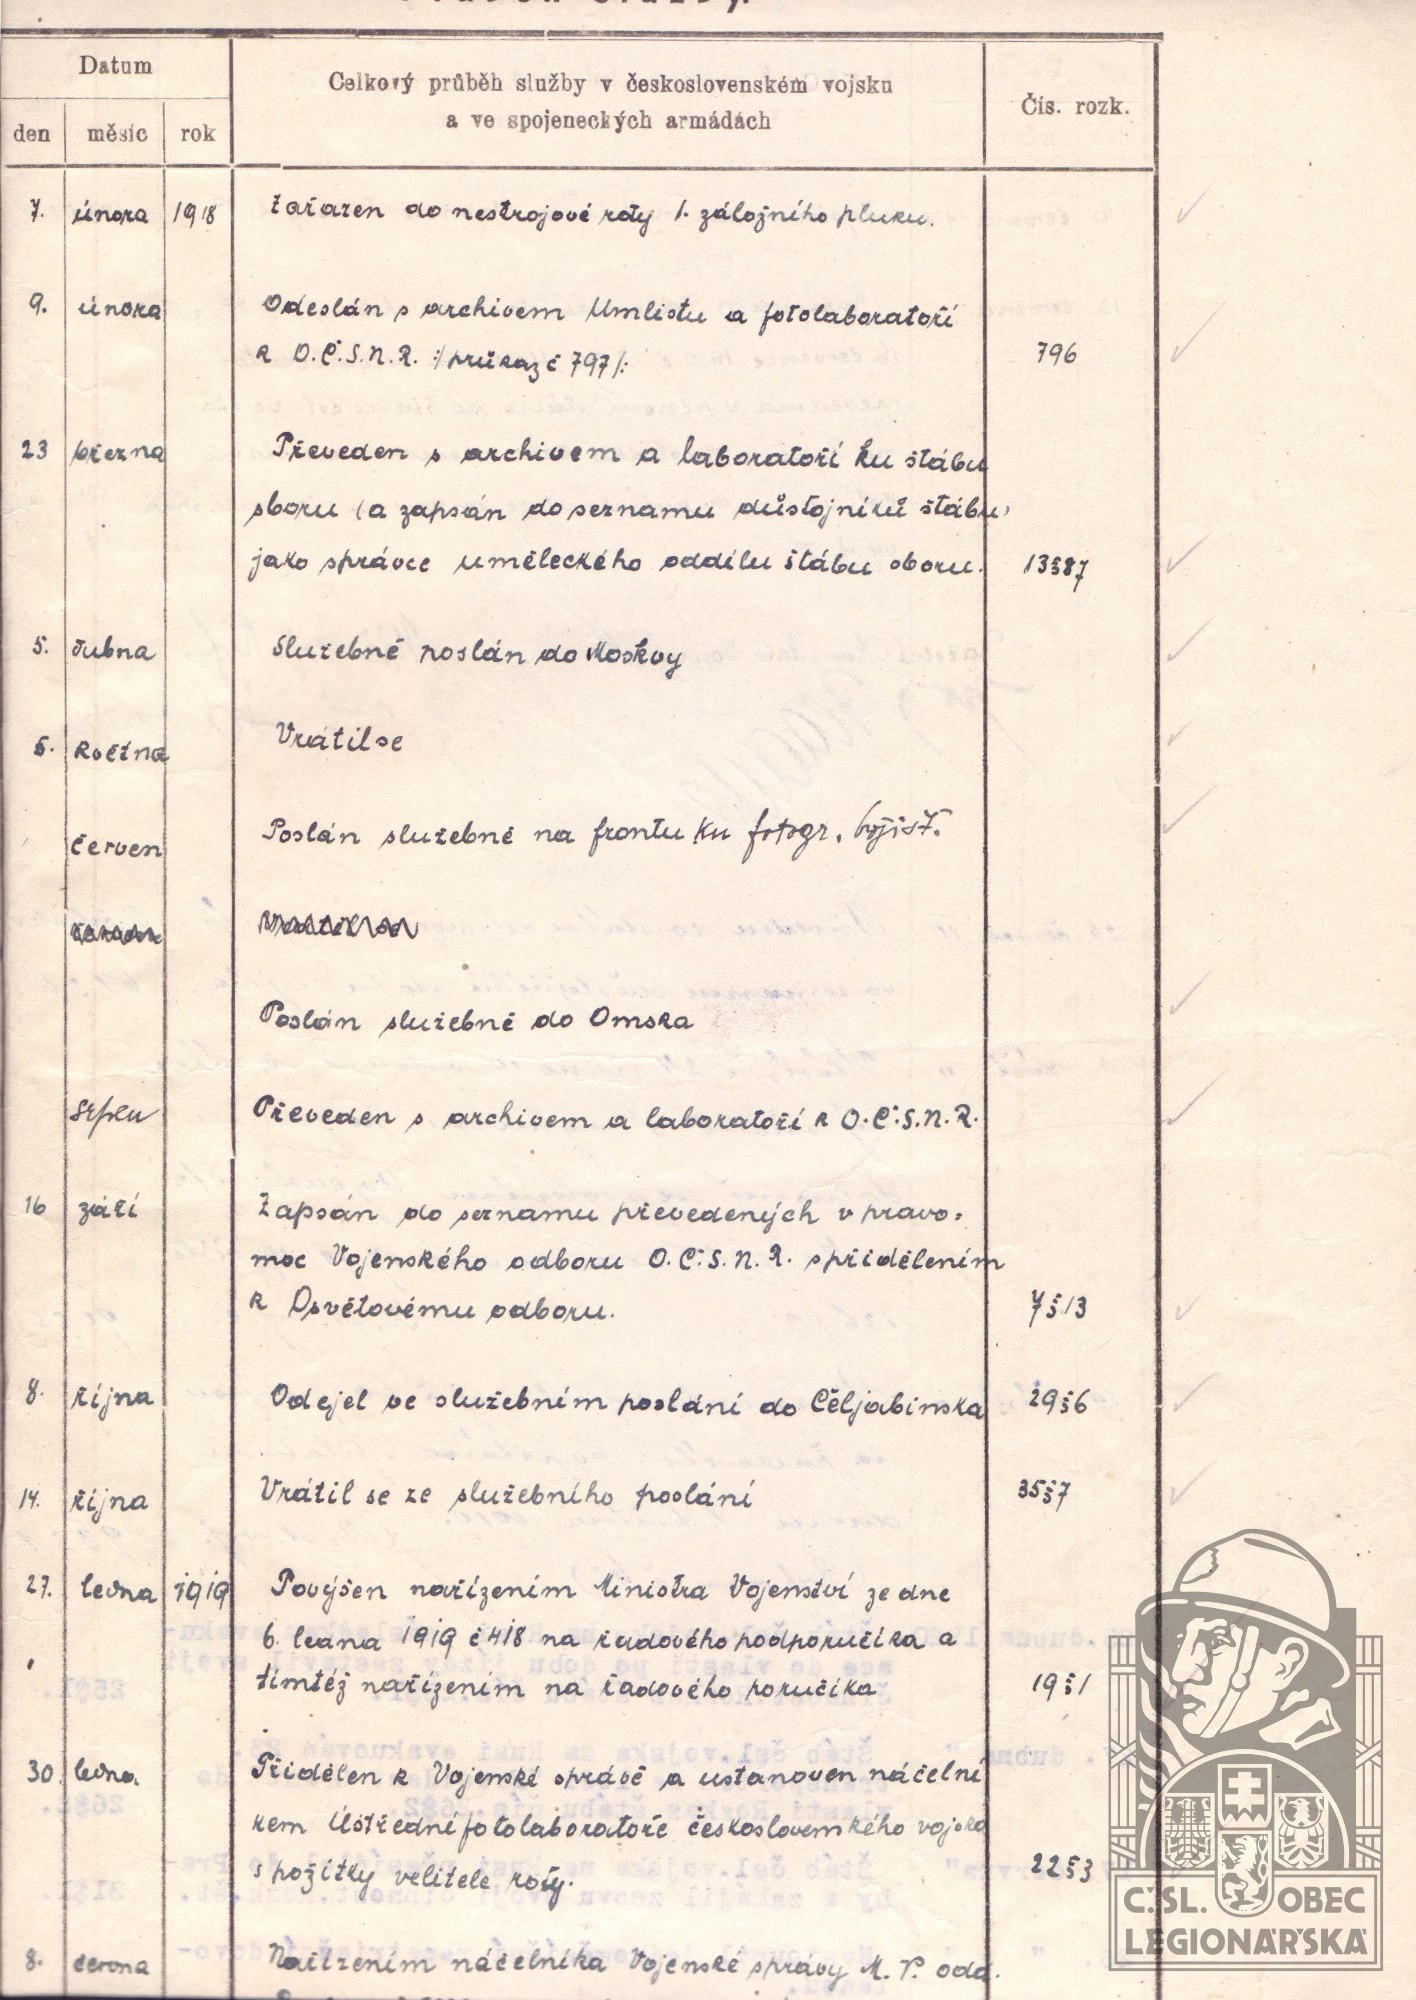 Datum
Celkový průběh služby v československém vojsku
a ve spojeneckých armádách
Čís. rozk.
den měsíc rok
7. února 1918 Zařazen do nestrojové roty 1. záložního pluku.
9. února Odeslán s archivem Umlistu a fotolaboratoří
k O.Č.S.N.R. :/průkaz č 797/: 796
23 března Převeden s archivem a laboratoří ku štábu
sboru (a zapsán do seznamu důstojníků štábu)
jako správce uměleckého oddílu štábu sboru. 13§87
5. dubna Služebně poslán do Moskvy
6. května Vrátil se
červen Poslán služebně na frontu ku fotogr. bojišť.
Poslán služebně do Omska
Srpen Převeden s archivem a laboratoří k O.Č.S.N.R.
16 září Zapsán do seznamu převedených v pravo-
moc Vojenského odboru O.Č.S.N.R. s přidělením
k Osvětovému odboru. 7§13
8. října Odejel ve služebním poslání do Čěljabinska 29§6
14. října Vrátil se ze služebního poslání 35§7
27. ledna 1919 Povýšen nařízením Ministra Vojenství ze dne
6. ledna 1919 č 418 na řadového podporučíka a
tímtéž nařízením na řadového poručíka 19§1
30. ledna Přidělen k Vojenské správě a ustanoven náčelní
kem Ústřední fotolaboratoře československého vojska
s požitky velitele roty. 22§3
8. června Nařízením náčelníka Vojenské správy M.V. odd.
Č.SL. OBEC
LEGIONÁŘSKÁ